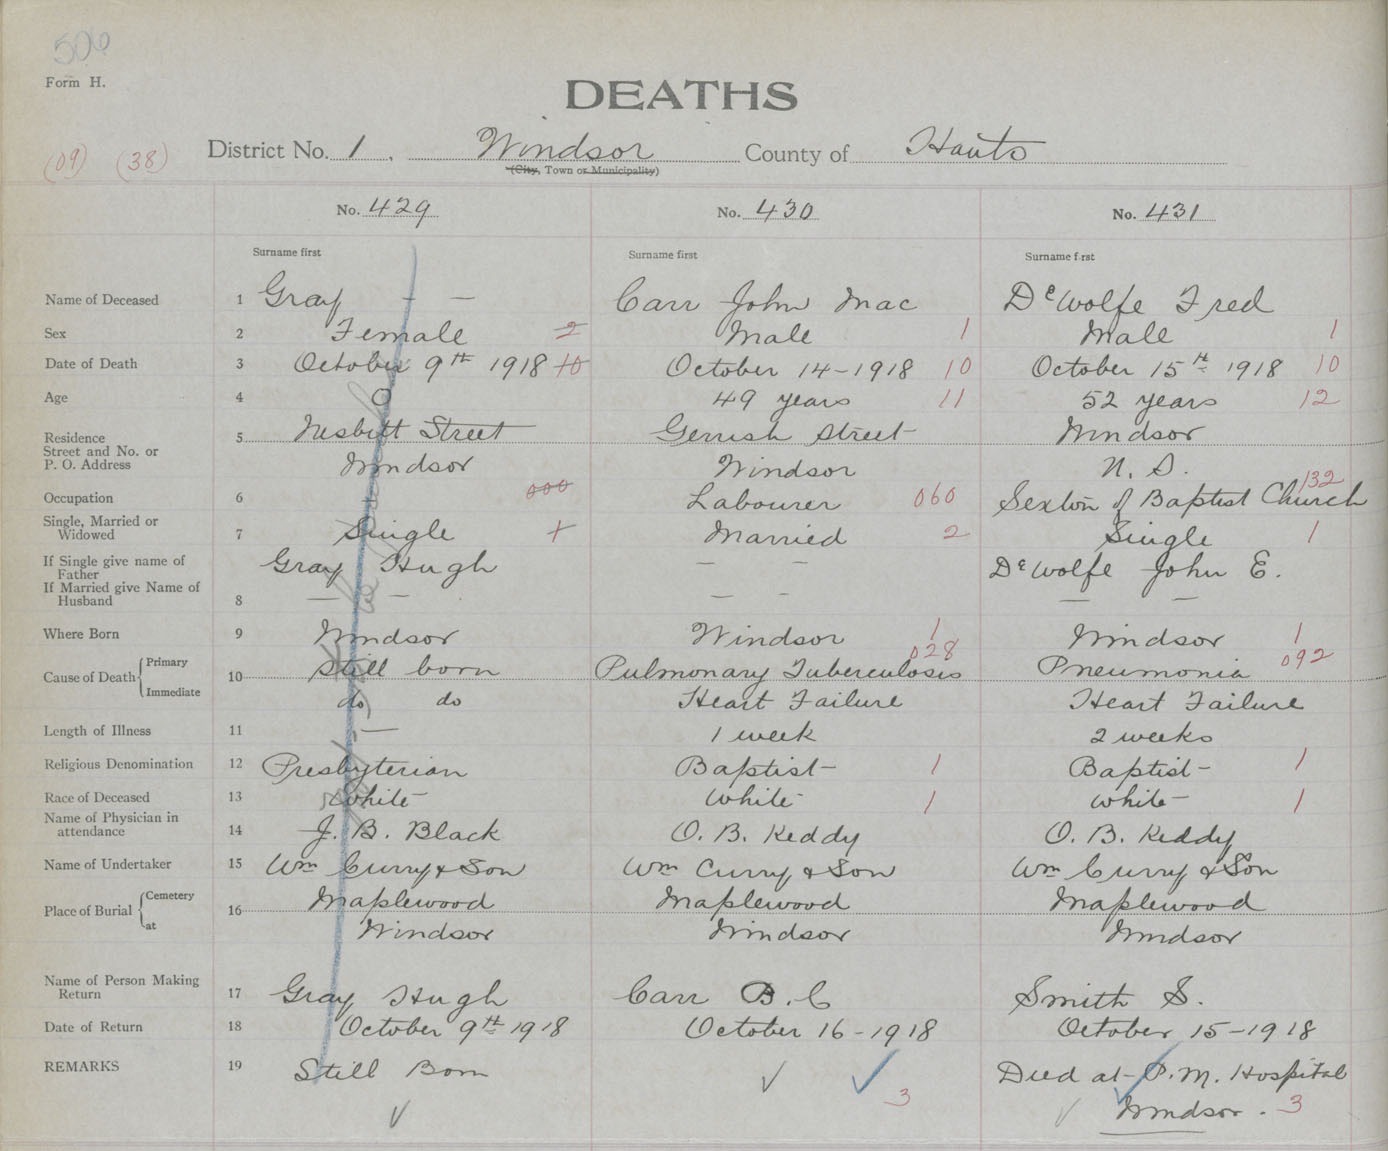 506
Form H.
DEATHS
(09) (38) District No. 1, Windsor County of Hants
(City, Town or Municipality)
No. 429 No. 430 No. 431
Surname first Surname first Surname first
Name of Deceased 1 Gray — — Carr John Mac DeWolfe Fred
Sex 2 Female 2 Male 1 Male 1
Date of Death 3 October 9th 1918 10 October 14-1918 10 October 15th 1918 10
Age 4 0 49 years 11 52 years 12
Residence 5 Nesbitt Street Gerrish Street Windsor
Street and No. or
P. O. Address Windsor Windsor N. S.
Occupation 6 000 Labourer 060 Sexton of Baptist Church 132
Single, Married or
Widowed 7 Single + Married 2 Single 1
If Single give name of
Father Gray Hugh — — DeWolfe John E.
If Married give Name of
Husband 8 — — — — — —
Where Born 9 Windsor Windsor 1 Windsor 1
Cause of Death Primary 10 Still born Pulmonary Tuberculosis 028 Pneumonia 092
Immediate do do Heart Failure Heart Failure
Length of Illness 11 — 1 week 2 weeks
Religious Denomination 12 Presbyterian Baptist 1 Baptist 1
Race of Deceased 13 White White 1 White 1
Name of Physician in
attendance 14 J. B. Black O. B. Keddy O. B. Keddy
Name of Undertaker 15 Wm Curry & Son Wm Curry & Son Wm Curry & Son
Place of Burial Cemetery 16 Maplewood Maplewood Maplewood
at Windsor Windsor Windsor
Name of Person Making
Return 17 Gray Hugh Carr B. C Smith S.
Date of Return 18 October 9th 1918 October 16-1918 October 15-1918
REMARKS 19 Still Born 3 Died at P. M. Hospital
Windsor. 3